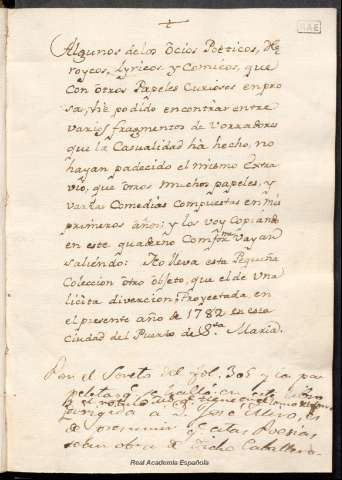 RAE
Algunos de los Ocios Poeticos, He-
roycos, Lyricos y Comicos, que
con otros Papeles Curiosos en pro-
sa, he podido encontrar entre
varios fragmentos de Vorradores
que la Casualidad ha hecho, no
hayan padecido el mismo Extra-
vio, que otros muchos papeles, y
varias Comedias compuestas en mis
primeros años: y los voy Copiando
en este quaderno Comforme vayan
saliendo: No lleva esta Pequeña
Coleccion otro objeto, que el de vna
licita divercion; Proyectada en
el presente año de 1782 en esta
Ciudad del Puerto de Sta. Maria.
Por el Soneto del fol. 305 y la pa-
peleta
dirigida a D. Jose
de presumir q estas Poesias
sean obra de Dicho Caballero.
Real Academia Española